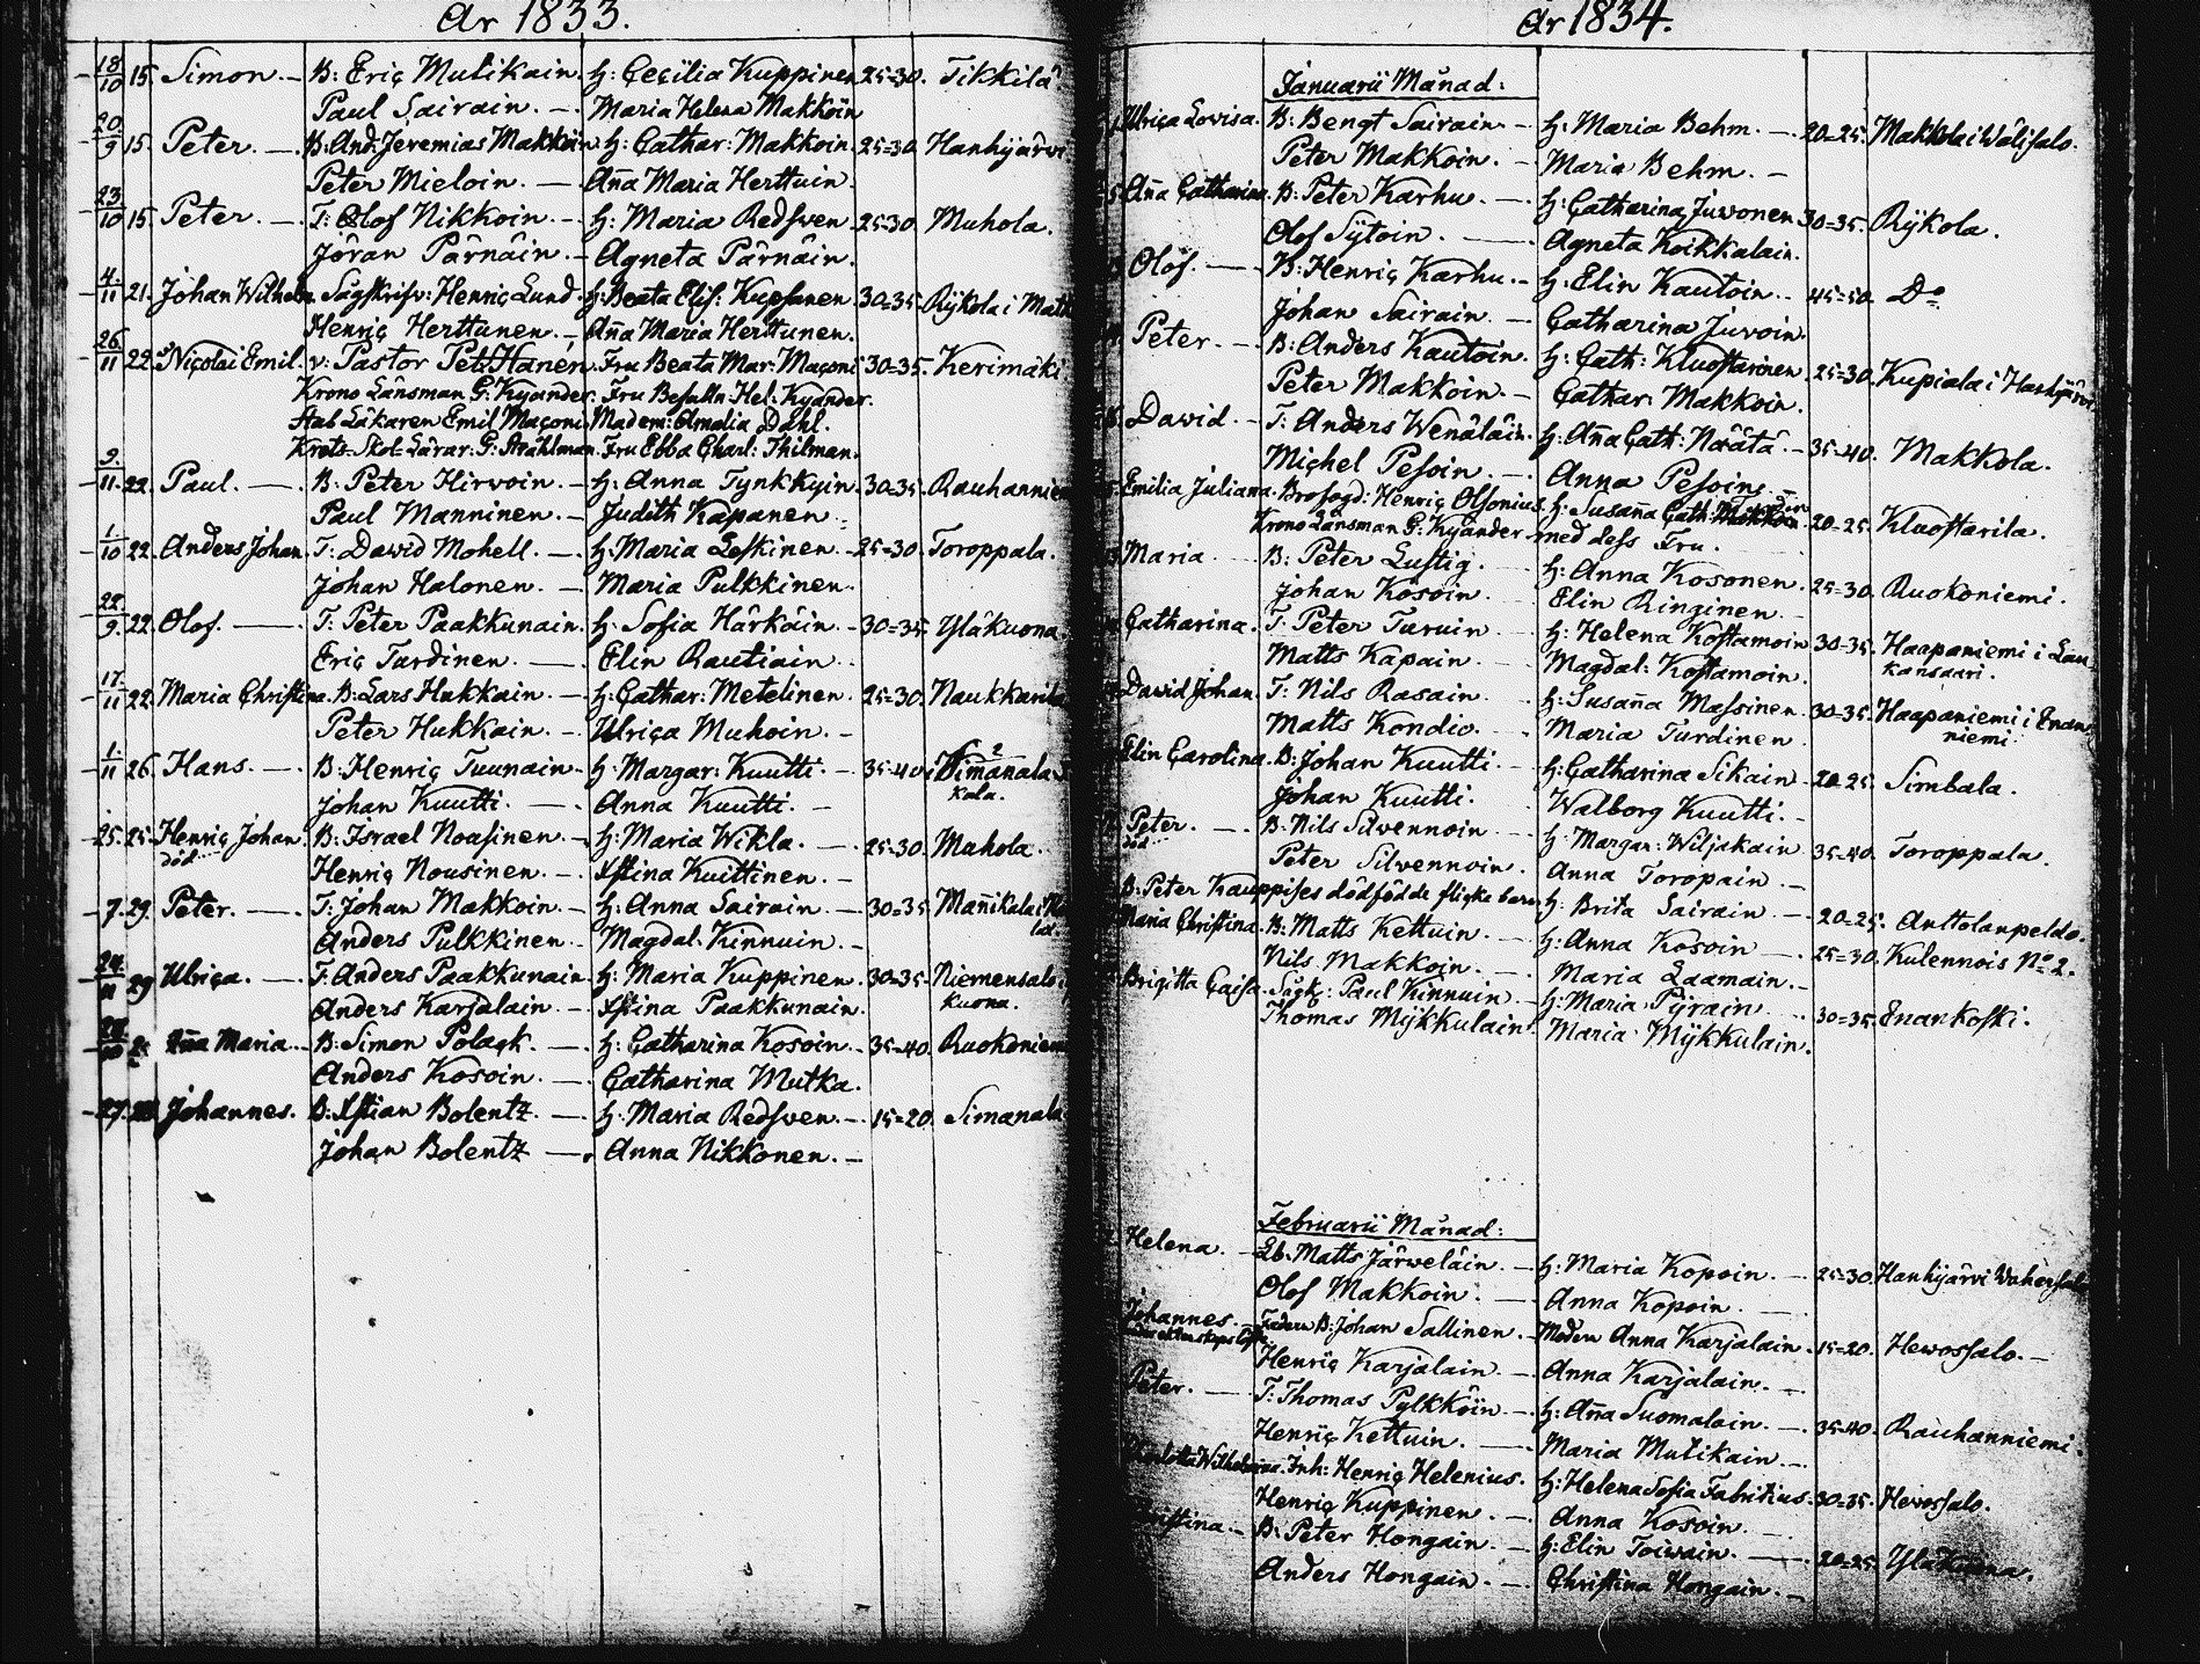 År 1833.
18/10 15. Simon. — B: Eric Mutikain. H: Cecilia Kuppinen 25=30. Tikkilä
Paul Sairain. — Maria Helena Makkoin
20/9 15. Peter. — B: And: Jeremias Makkoin. H: Cathar: Makkoin. 25=30. Hanhijärvi
Peter Mieloin. — Aña Maria Herttuin.
23/10 15. Peter. — T: Olof Nikkoin. — H: Maria Redsven 25=30. Muhola.
Jöran Pärnäin. — Agneta Pärnäin.
4/11 21. Johan Wilhelm. Sågskrifv: Henric Lund. H: Beata Elis: Kupsanen 30=35. Rÿkola i Math
Henric Herttunen. — Aña Maria Herttunen.
26/11 22. Nicolai Emil. v: Pastor Pet: Hanén. Fru Beata Mar: Maconi 30=35. Kerimäki.
Krono Länsman G: Kyander. Fru Befalln: Hel: Kyander.
Stab Läkaren Emil Maconi. Madem: Amalia Dahl.
Krets-Skol-Lärar: G: Stråhlman. Fru Ebba Charl: Thilman.
9/11. 22. Paul. — B: Peter Hirvoin. — H: Anna Tynkkyin. 30=35. Rauhanniem
Paul Manninen. — Judith Kapanen.
1/10 22. Anders Johan. T: David Mohell. — H: Maria Leskinen. — 25=30. Toroppala.
Johan Halonen. — Maria Pulkkinen.
22/9. 22. Olof. — T: Peter Paakkunain. H: Sofia Härkäin. — 30=35. Yläkuona.
Eric Turdinen. — Elin Rautiain.
17/11 22. Maria Christina. B: Lars Hukkain. — H: Cathar: Metelinen. 25=30. Naukkarila
Peter Hukkain. — Ulrica Muhoin. —
1/11 26. Hans. — B: Henric Tuunain. H: Margar: Kuutti. — 35=40.
kala.
Johan Kuutti. — Anna Kuutti. —
25. 25. Henric Johan. B: Israel Noasinen. — H: Maria Wikla. — 25=30. Muhola.
död
Henric Nousinen. — Xstina Kuittinen. —
7. 29. Peter. — T: Johan Makkoin. — H: Anna Sairain. — 30=35. Mañikala i
Anders Pulkkinen. — Magdal: Kinnuin. —
24/11 29 Ulrica. — T: Anders Paakkunain. H: Maria Kuppinen. 30=35. Niemensalo
kuona.
Anders Karjalain. — Xstina Paakkunain.
Aña Maria. — B: Simon Polack. — H: Catharina Kosoin. — 35=40. Ruokoniem
Anders Kosoin. — Catharina Mutka.
27. Johannes. B: Xstian Bolentz. — H: Maria Redsven. — 15=20. Simanala
Johan Bolentz — Anna Nikkonen. —
År 1834.
Januarii Månad:
Ulrica Lovisa. B: Bengt Sairain. — H: Maria Behm. — 20=25. Makkola i Wälisalo.
Peter Makkoin. — Maria Behm. —
Aña Catharina. B: Peter Karhu. — H: Catharina Juvonen 30=35. Rÿkola.
Olof Sÿtoin. — Agneta Koikkalain.
Olof. — B: Henric Karhu. — H: Elin Kautoin. — 45=50. Do
Johan Sairain. — Catharina Juvoin.
Peter. — B: Anders Kautoin. H: Cath: Kluostarinen. 25=30. Kupiala i Hanhijärvi
Peter Makkoin. — Cathar: Makkoin.
David. — T: Anders Wenäläin. H: Aña Cath: Näätä. — 35=40. Makkola.
Michel Pesoin. — Anna Pesoin. —
Emilia Juliana. Brofogd: Henric Olsonius. H: Susaña Cath: 20=25. Kluostarila.
Krono Länsman G: Kyander — med dess Fru.
Maria B: Peter Lustig. — H: Anna Kosonen. 25=30. Ruokoniemi.
Johan Kosoin. Elin Ringinen. —
Catharina. T: Peter Turuin H: Helena Kostamoin 30=35. Haapaniemi i Lau
kansaari.
Matts Kapain Magdal: Kostamoin.
David Johan. T: Nils Rasain H: Susaña Massinen. 30=35. Haapaniemi i Enan
niemi.
Matts Kondio. Maria Turdinen
Elin Carolina. B: Johan Kuutti. — H: Catharina Sikain. 20=25. Simbala.
Johan Kuutti. Walborg Kuutti. —
Peter. — B: Nils Silvennoin — H: Margar: Wiljakain 35=40. Toroppala.
död
Peter Silvennoin. Anna Toropain. —
B: Peter Kauppises dödfödde flicke barn. H: Brita Sairain. — 20=25. Anttolanpeldo.
Maria Christina. B: Matts Kettuin. — H: Anna Kosoin 25=30. Kulennois No 2.
Nils Makkoin. — Maria Laamain. —
Brigitta Caisa. Sågk: Paul Kinnuin. — H: Maria Pÿrain 30=35. Enankoski.
Thomas Mÿkkulain. Maria Mÿkkulain.
Februarii Månad:
Helena. — Lb: Matts Järveläin. — H: Maria Kopoin. — 25=30. Hanhijärvi Wahersalo
Olof Makkoin. — Anna Kopoin. —
Johannes. — Fadern B: Johan Sallinen. — Modern Anna Karjalain. 15=20. Hevossalo. —
Henric Karjalain. — Anna Karjalain. —
Peter. — T: Thomas Pylkköin. — H: Aña Suomalain. — 35=40. Rauhanniemi.
Henric Kettuin. — Maria Mutikain. —
Wilhelmina. Inh: Henric Helenius. H: Helena Sofia Fabritius. 30=35. Hevossalo.
Henric Kuppinen. — Anna Kosoin. —
Christina. — B: Peter Hongain. — H: Elin Toivain. — 20=25. Yläkuona.
Anders Hongain. — Christina Hongain. —